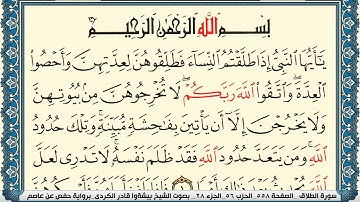 بِسْمِ اللَّهِ الرَّحْمَٰنِ الرَّحِيمِ
يَا أَيُّهَا النَّبِيُّ إِذَا طَلَّقْتُمُ النِّسَاءَ فَطَلِّقُوهُنَّ لِعِدَّتِهِنَّ وَأَحْصُوا
الْعِدَّةَ ۖ وَاتَّقُوا اللَّهَ رَبَّكُمْ ۖ لَا تُخْرِجُوهُنَّ مِن بُيُوتِهِنَّ
وَلَا يَخْرُجْنَ إِلَّا أَن يَأْتِينَ بِفَاحِشَةٍ مُّبَيِّنَةٍ ۚ وَتِلْكَ حُدُودُ
اللَّهِ ۚ وَمَن يَتَعَدَّ حُدُودَ اللَّهِ فَقَدْ ظَلَمَ نَفْسَهُ ۚ لَا تَدْرِي لَعَلَّ
سورة الطلاق . الصفحة ٥٥٨ الحزب ٥٦ . الجزء ٢٨ . بصوت الشيخ بيشةوا قادر الكردى . برواية حفص عن عاصم